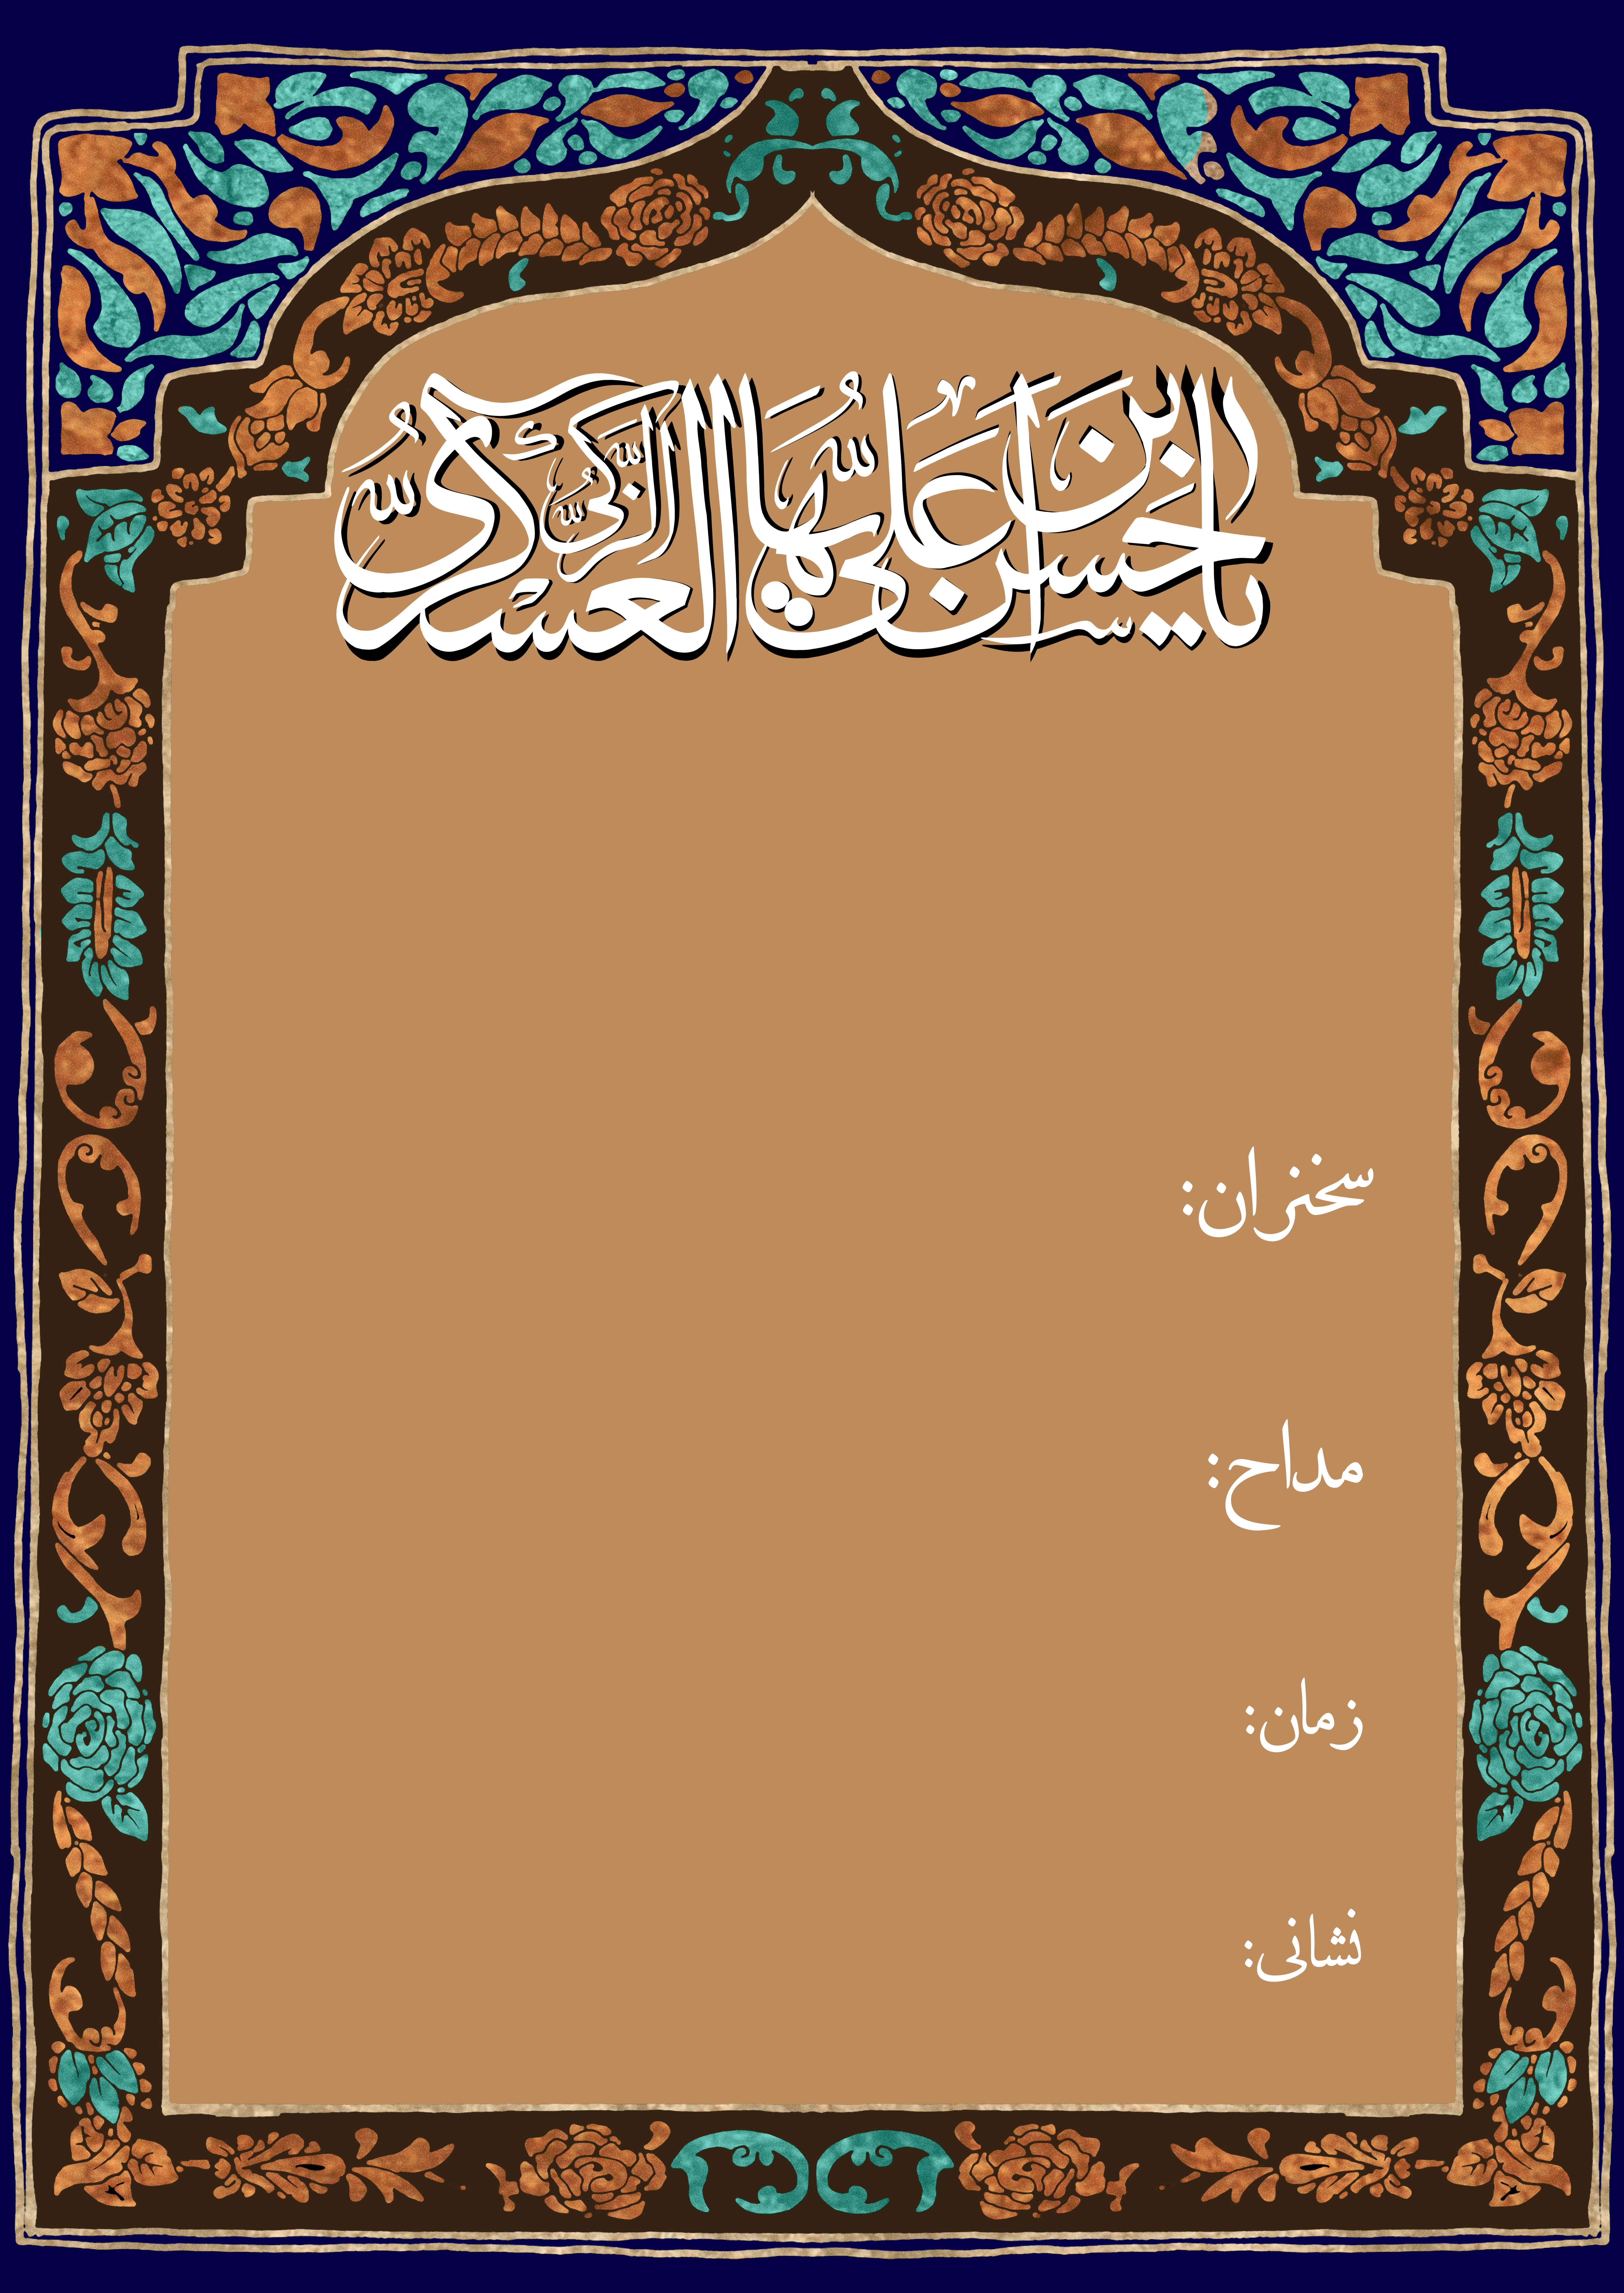 یا حسن بن علی ایها الزکی العسکری
سخنران:
مداح:
زمان:
نشانی: